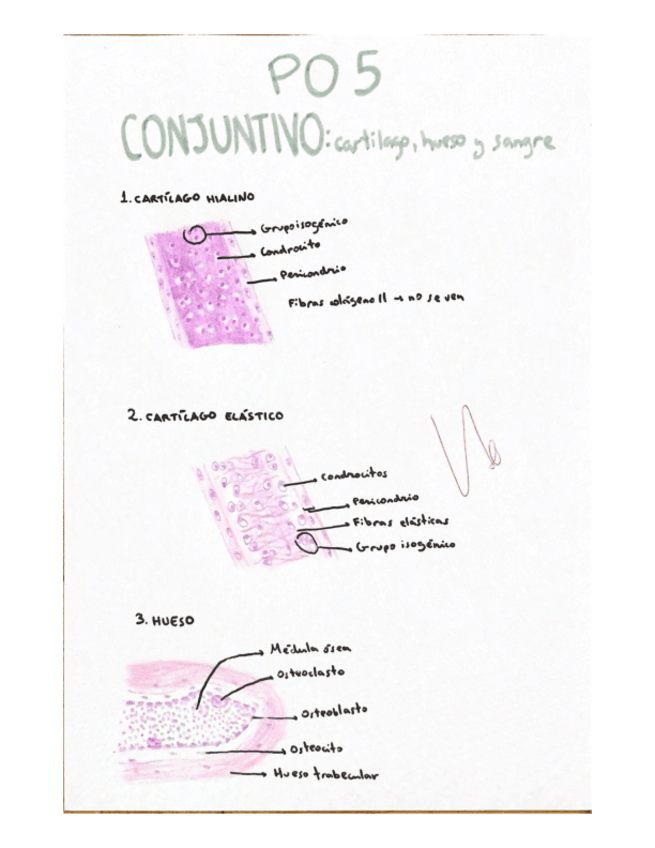 PO 5
CONJUNTIVO: cartílago, hueso y sangre
1. CARTÍLAGO HIALINO
Grupo isogénico
Condrocito
Pericondrio
Fibras colágeno II → no se ven
2. CARTÍLAGO ELÁSTICO
Condrocitos
Pericondrio
Fibras elásticas
Grupo isogénico
3. HUESO
Médula ósea
Osteoclasto
Osteoblasto
Osteocito
Hueso trabecular